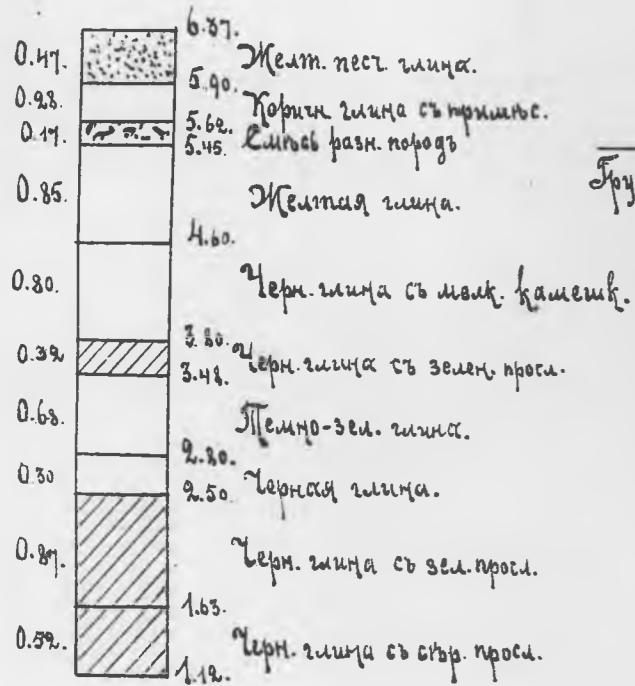 6.37.
0.47. Желт. песч. глина.
5.90.
0.28. Коричн. глина съ примѣс.
5.62.
0.17. Смѣсь разн. породъ
5.45.
0.85. Желтая глина.
Гру
4.60.
0.80. Черн. глина съ мелк. камешк.
3.80.
0.32 Черн. глина съ зелен. просл.
3.48.
0.68. Темно-зел. глина.
2.80.
0.30 Черная глина.
2.50
0.87. Черн. глина съ зел. просл.
1.63.
0.52. Черн. глина съ сѣр. просл.
1.12.